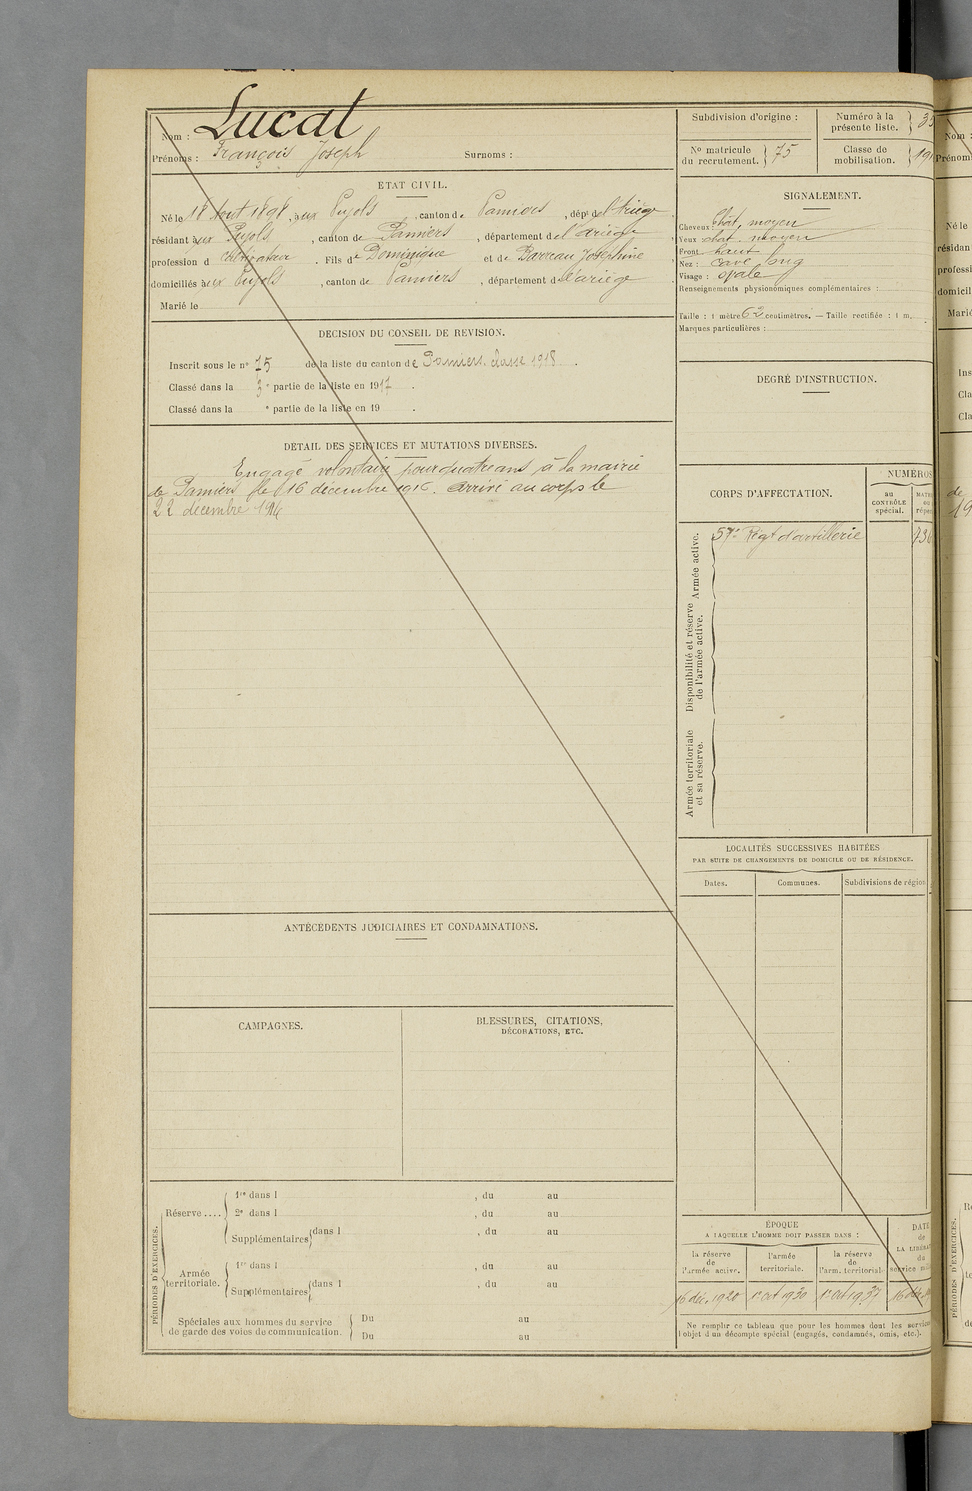 Nom : Lucat
Prénoms : François Joseph Surnoms :
ETAT CIVIL.
Né le 18 Août 1898, aux Pujols, canton de Pamiers, dépt de l'Ariège
résidant aux Pujols, canton de Pamiers, département de l'ariège
profession d cultivateur. Fils de Dominique et de Barreau Joséphine
domiciliés aux Pujols, canton de Pamiers, département de l'ariège
Marié le
DECISION DU CONSEIL DE REVISION.
Inscrit sous le n° 75 de la liste du canton de Pamiers. classe 1918.
Classé dans la 3e partie de la liste en 1917.
Classé dans la e partie de la liste en 19 .
DETAIL DES SERVICES ET MUTATIONS DIVERSES.
Engagé volontaire pour quatre ans à la mairie
de Pamiers le 16 décembre 1916. arrivé au corps le
22 décembre 1916
ANTÉCÉDENTS JUDICIAIRES ET CONDAMNATIONS.
CAMPAGNES.
BLESSURES, CITATIONS,
DÉCORATIONS, ETC.
PÉRIODES D'EXERCICES.
Réserve ....
1re dans l , du au
2e dans l , du au
Supplémentaires dans l , du au
Armée territoriale.
1re dans l , du au
Supplémentaires dans l , du au
Spéciales aux hommes du service
de garde des voies de communication.
Du au
Du au
Subdivision d'origine :
Numéro à la
présente liste.
N° matricule
du recrutement. 75
Classe de
mobilisation.
SIGNALEMENT.
Cheveux : chât. moyen
Yeux chat. moyen
Front haut
Nez : cave long
Visage : ovale
Renseignements physionomiques complémentaires :
Taille : 1 mètre 62 centimètres. — Taille rectifiée : 1 m.
Marques particulières :
DEGRÉ D'INSTRUCTION.
CORPS D'AFFECTATION.
NUMÉROS
au
CONTRÔLE
spécial.
Armée active.
57e Régt d'artillerie
Disponibilité et réserve
de l'armée active.
Armée territoriale
et sa réserve.
LOCALITÉS SUCCESSIVES HABITÉES
PAR SUITE DE CHANGEMENTS DE DOMICILE OU DE RÉSIDENCE.
Dates. Communes. Subdivisions de région
ÉPOQUE
A LAQUELLE L'HOMME DOIT PASSER DANS :
DATE
de
la réserve
de
l'armée active.
l'armée
territoriale.
la réserve
de
l'arm. territoriale
16 déc. 1920 1er Oct 1930 1er Oct 1937 16 déc.
Ne remplir ce tableau que pour les hommes dont les services
l'objet d'un décompte spécial (engagés, condamnés, omis, etc.).